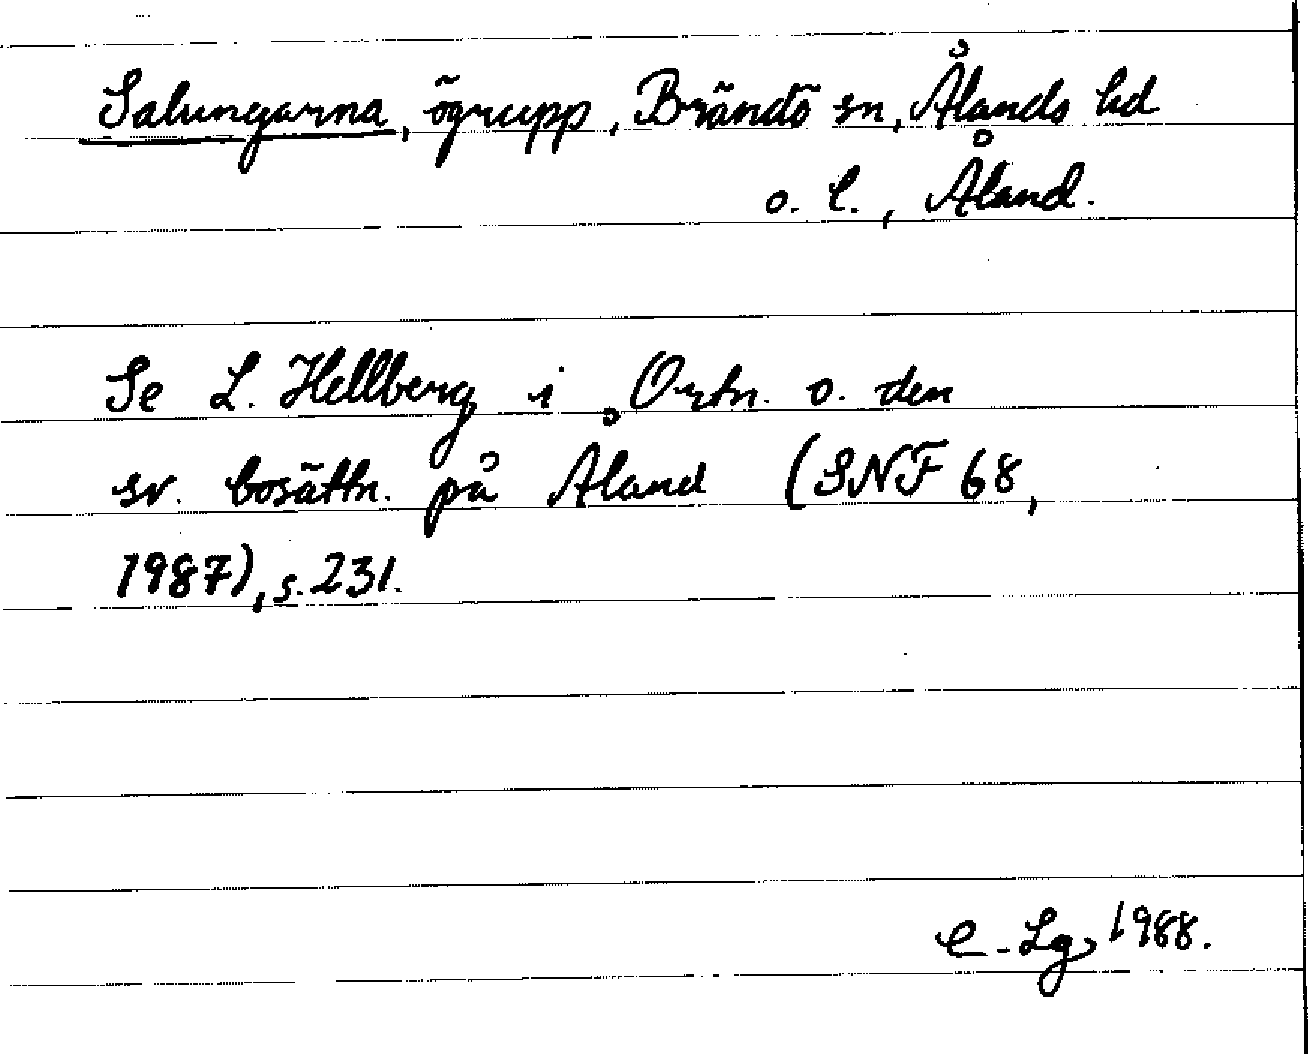 Salungarna, ögrupp, Brändö sn, Ålands hd
o. l., Åland.
Se L. Hellberg i Ortn. o. den
sv. bosättn. på Åland (SNF 68,
1987), s. 231.
C-Lg, 1988.